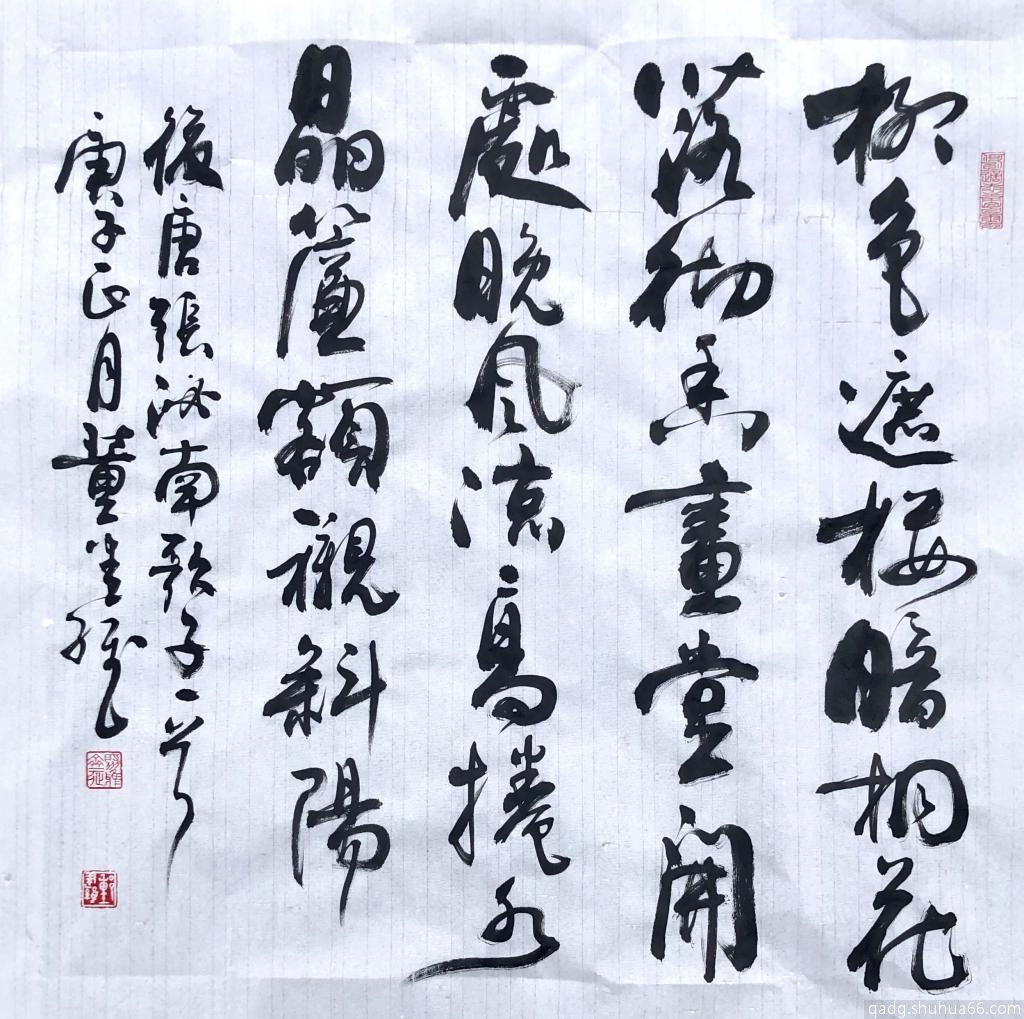 柳色遮樓暗桐花
落砌香畫堂開
處晚風涼高捲水
晶簾額襯斜陽
後唐張泌南歌子一首
庚子正月董
qadg.shuhua66.com